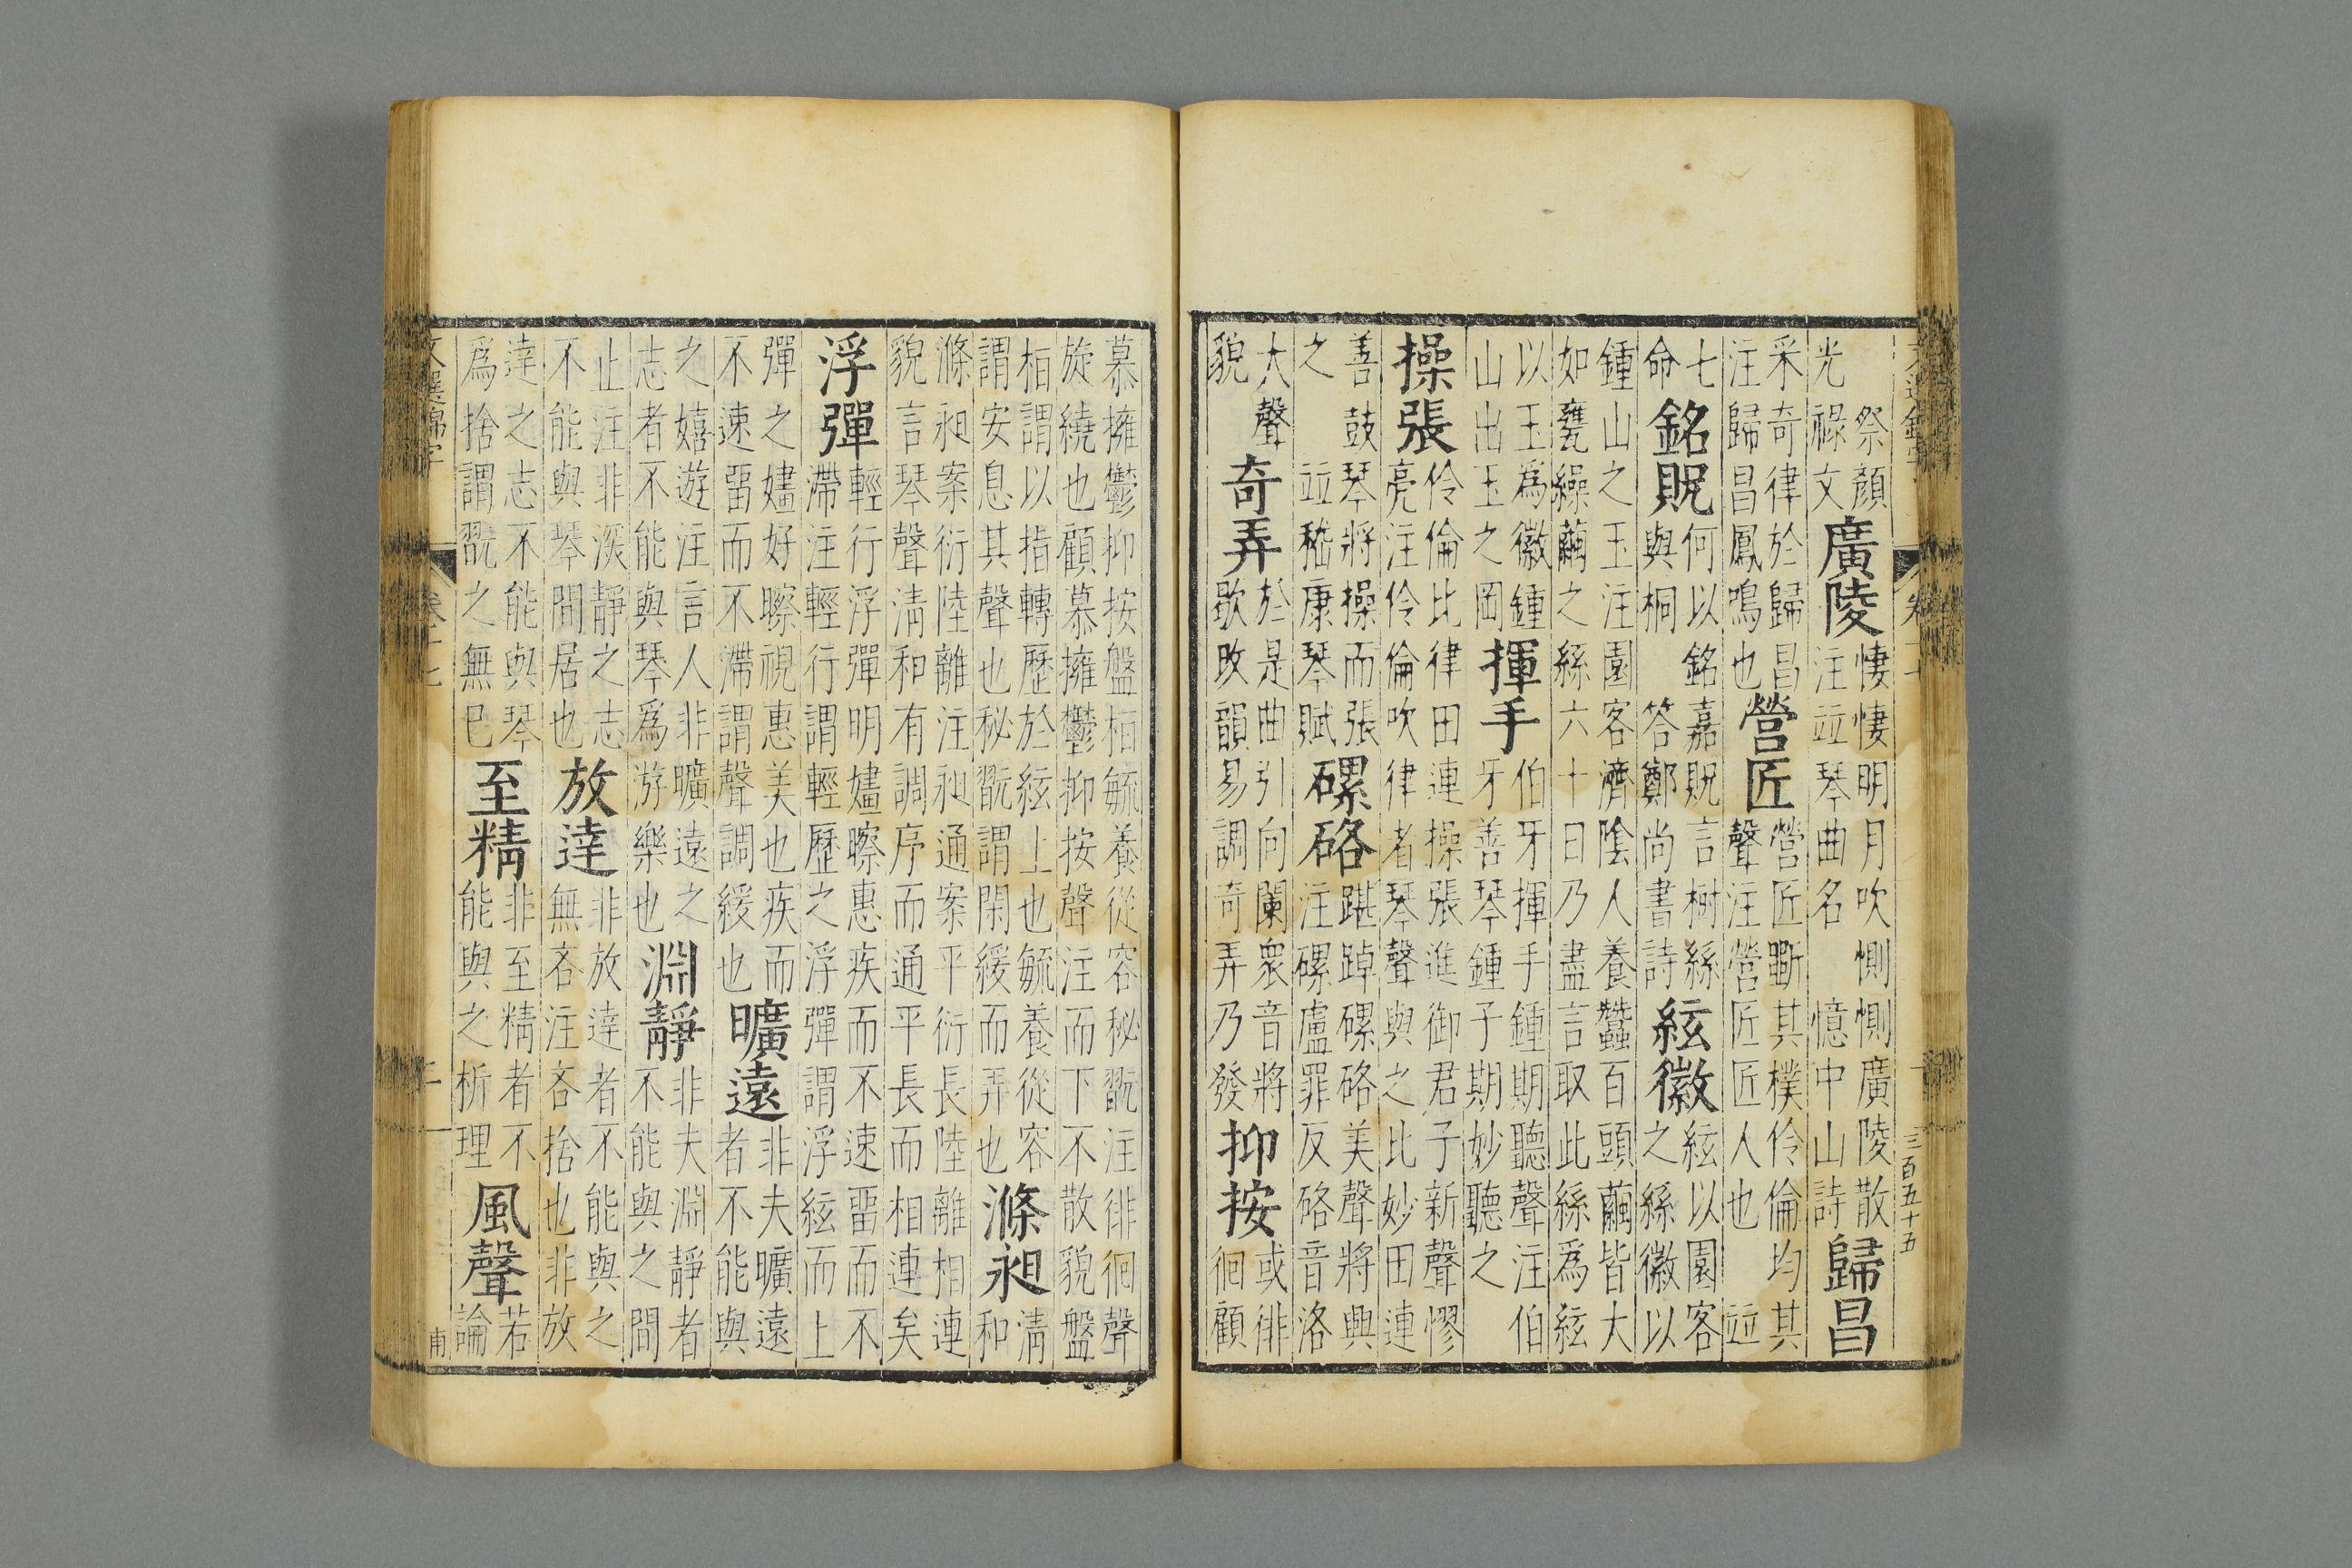 三百五十五
祭顏
光祿文
廣陵
悽悽明月吹惻惻廣陵散
注竝琴曲名 憶中山詩
歸昌
采奇律於歸昌
注歸昌鳳鳴也
營匠
營匠斲其樸伶倫均其
聲注營匠匠人也 竝
七
命
銘貺
何以銘嘉貺言樹絲
與桐 答鄭尚書詩
絃徽
絃以園客
之絲徽以
鍾山之玉注園客濟陰人養蠶百頭繭皆大
如甕繰繭之絲六十日乃盡言取此絲爲絃
以玉爲徽鍾
山出玉之岡
揮手
伯牙揮手鍾期聽聲注伯
牙善琴鍾子期妙聽之
操張
伶倫比律田連操張進御君子新聲憀
亮注伶倫吹律者琴聲與之比妙田連
善鼓琴將操而張
之 竝嵇康琴賦
磥硌
踸踔磥硌美聲將興
注磥盧罪反硌音洛
大聲
貌
奇弄
於是曲引向闌衆音將
歇改韻易調奇弄乃發
抑按
或徘
徊顧
慕擁鬱抑按盤桓毓養從容秘翫注徘徊聲
旋繞也顧慕擁鬱抑按聲注而下不散貌盤
桓謂以指轉歷於絃上也毓養從容
謂安息其聲也秘翫謂閑緩而弄也
滌昶
清
和
滌昶案衍陸離注昶通案平衍長陸離相連
貌言琴聲清和有調序而通平長而相連矣
浮彈
輕行浮彈明嫿㬠惠疾而不速留而不
滯注輕行謂輕歷之浮彈謂浮絃而上
彈之嫿好㬠視惠美也疾而
不速留而不滯謂聲調緩也
曠遠
非夫曠遠
者不能與
之嬉遊注言人非曠遠之
志者不能與琴爲游樂也
淵靜
非夫淵靜者
不能與之間
止注非深靜之志
不能與琴間居也
放達
非放達者不能與之
無吝注吝捨也非放
達之志不能與琴
爲捨謂翫之無已
至精
非至精者不
能與之析理
風聲
若
論
二
甫